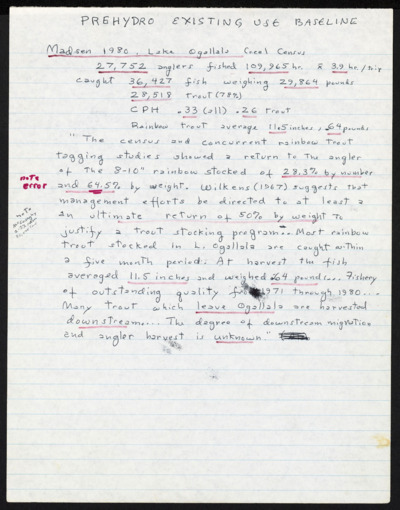 PREHYDRO EXISTING USE BASELINE
Madsen 1980, Lake Ogallala Creel Census
27,752 anglers fished 109,965 hr. & 3.9 hr./trip
caught 36,427 fish weighing 29,864 pounds
28,518 trout (78%)
CPH .33 (all) .26 trout
Rainbow trout average 11.5 inches, .64 pounds
"The census and concurrent rainbow trout
tagging studies showed a return to the angler
of the 8-10" rainbow stocked of 28.3% by number
note
error
and 64.5% by weight. Wilkens (1967) suggests that
management efforts be directed to at least a
an ultimate return of 50% by weight to
note
justify a trout stocking program... Most rainbow
trout stocked in L. Ogallala are caught within
a five month period. At harvest the fish
averaged 11.5 inches and weighed .64 pounds... Fishery
of outstanding quality for 1971 through 1980...
Many trout which leave Ogallala are harvested
downstream... The degree of downstream migration
and angler harvest is unknown."